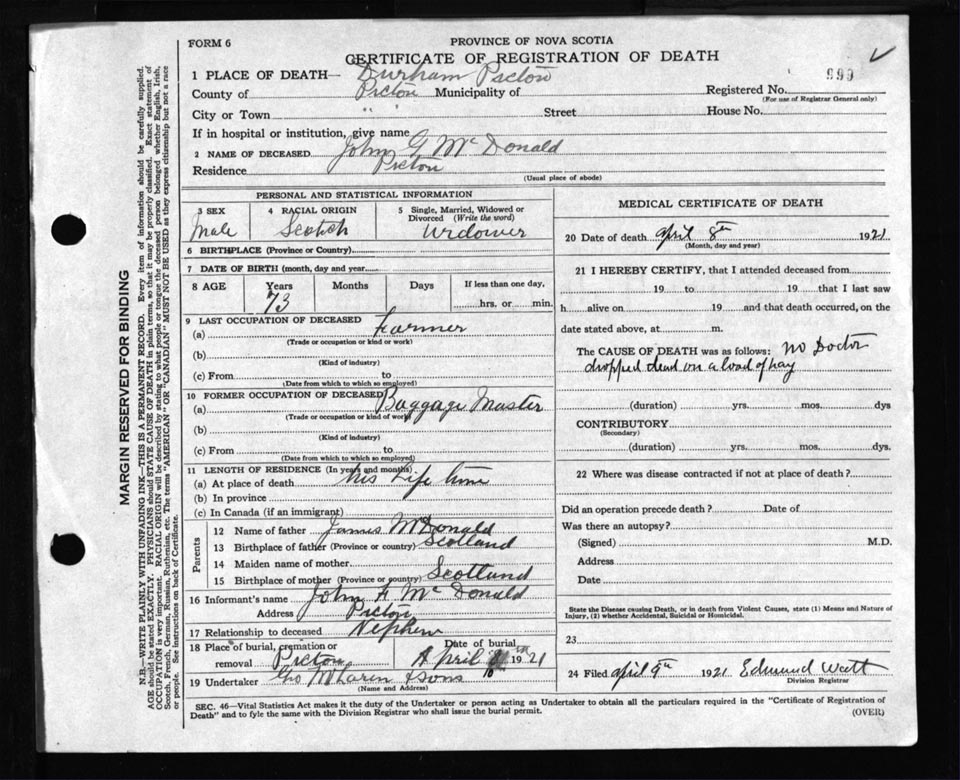 FORM 6
PROVINCE OF NOVA SCOTIA
CERTIFICATE OF REGISTRATION OF DEATH
1 PLACE OF DEATH— Durham Pictou
999
County of Pictou Municipality of
Registered No.
(For use of Registrar General only)
City or Town " " Street House No.
If in hospital or institution, give name
2 NAME OF DECEASED John G McDonald
Residence Pictou
(Usual place of abode)
PERSONAL AND STATISTICAL INFORMATION
3 SEX Male
4 RACIAL ORIGIN Scotch
5 Single, Married, Widowed or Divorced (Write the word) Widower
6 BIRTHPLACE (Province or Country)
7 DATE OF BIRTH (month, day and year)
8 AGE Years 73 Months Days If less than one day, hrs. or min.
9 LAST OCCUPATION OF DECEASED
(a) Farmer
(Trade or occupation or kind or work)
(b)
(Kind of industry)
(c) From to
(Date from which to which so employed)
10 FORMER OCCUPATION OF DECEASED
(a) Baggage Master
(Trade or occupation or kind of work)
(b)
(Kind of industry)
(c) From to
(Date from which to which so employed)
11 LENGTH OF RESIDENCE (In years and months)
(a) At place of death his Life time
(b) In province
(c) In Canada (if an immigrant)
Parents
12 Name of father James McDonald
13 Birthplace of father (Province or country) Scotland
14 Maiden name of mother
15 Birthplace of mother (Province or country) Scotland
16 Informant's name John F McDonald
Address Pictou
17 Relationship to deceased Nephew
18 Place of burial, cremation or removal Pictou
Date of burial April 10th 1921
19 Undertaker Geo McLaren & Sons
(Name and Address)
MEDICAL CERTIFICATE OF DEATH
20 Date of death April 8th 1921
(Month, day and year)
21 I HEREBY CERTIFY, that I attended deceased from
19 to 19 that I last saw
h alive on 19 and that death occurred, on the
date stated above, at m.
The CAUSE OF DEATH was as follows: no Doctor
dropped dead on a load of hay
(duration) yrs. mos. dys
CONTRIBUTORY
(Secondary)
(duration) yrs. mos. dys.
22 Where was disease contracted if not at place of death?
Did an operation precede death? Date of
Was there an autopsy?
(Signed) M.D.
Address
Date
State the Disease causing Death, or in death from Violent Causes, state (1) Means and Nature of Injury, (2) whether Accidental, Suicidal or Homicidal.
23
24 Filed April 9th 1921 Edmund Watt
Division Registrar
SEC. 46—Vital Statistics Act makes it the duty of the Undertaker or person acting as Undertaker to obtain all the particulars required in the "Certificate of Registration of
Death" and to fyle the same with the Division Registrar who shall issue the burial permit.
(OVER)
MARGIN RESERVED FOR BINDING
N.B.—WRITE PLAINLY WITH UNFADING INK—THIS IS A PERMANENT RECORD. Every item of information should be carefully supplied.
AGE should be stated EXACTLY. PHYSICIANS should STATE CAUSE OF DEATH in plain terms, so that it may be properly classified. Exact statement of
OCCUPATION is very important. RACIAL ORIGIN will be described by stating to what people or tongue the deceased person belonged whether English, Irish,
Scotch, French, German, Russian, Ruthenian, etc. The terms "AMERICAN" OR "CANADIAN" MUST NOT BE USED as they express citizenship but not a race
or people. See instructions on back of Certificate.